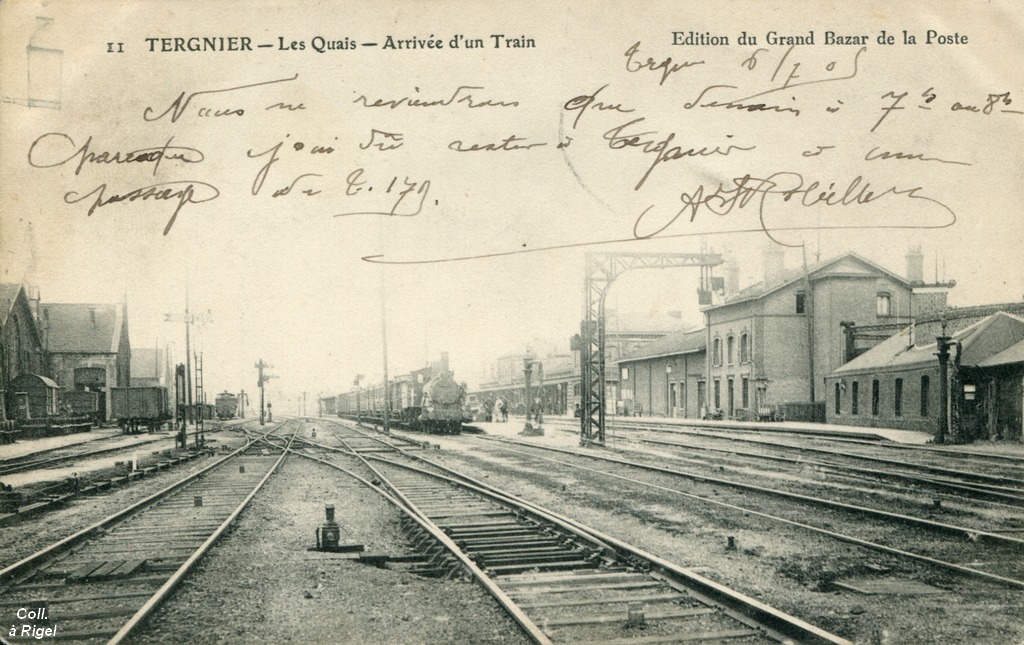 11 TERGNIER — Les Quais — Arrivée d'un Train
Edition du Grand Bazar de la Poste
Tergnier 6/7 05
Nous ne reviendrons que demain à 7h ou 8h
parceque j'ai dû rester à Tergnier à
passage du T. 179.
Coll.
à Rigel